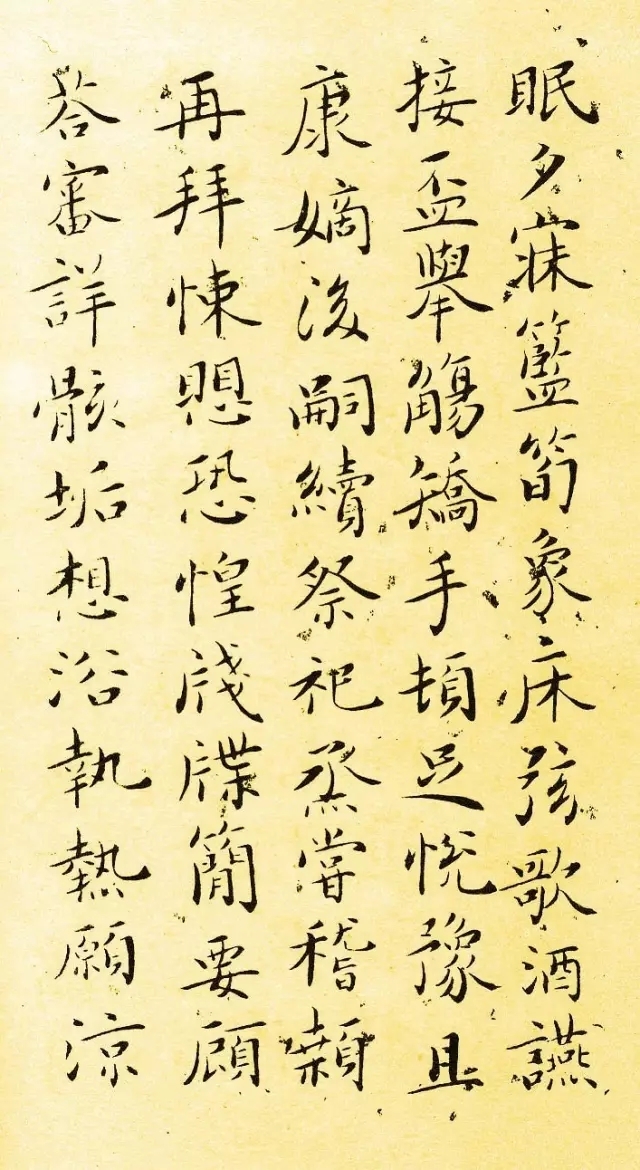 眠夕寐籃筍象床弦歌酒讌
接盃舉觴矯手頓足悅豫且
康嫡後嗣續祭祀烝嘗稽顙
再拜悚愳恐惶牋牒簡要顧
荅審詳骸垢想浴執熱願涼